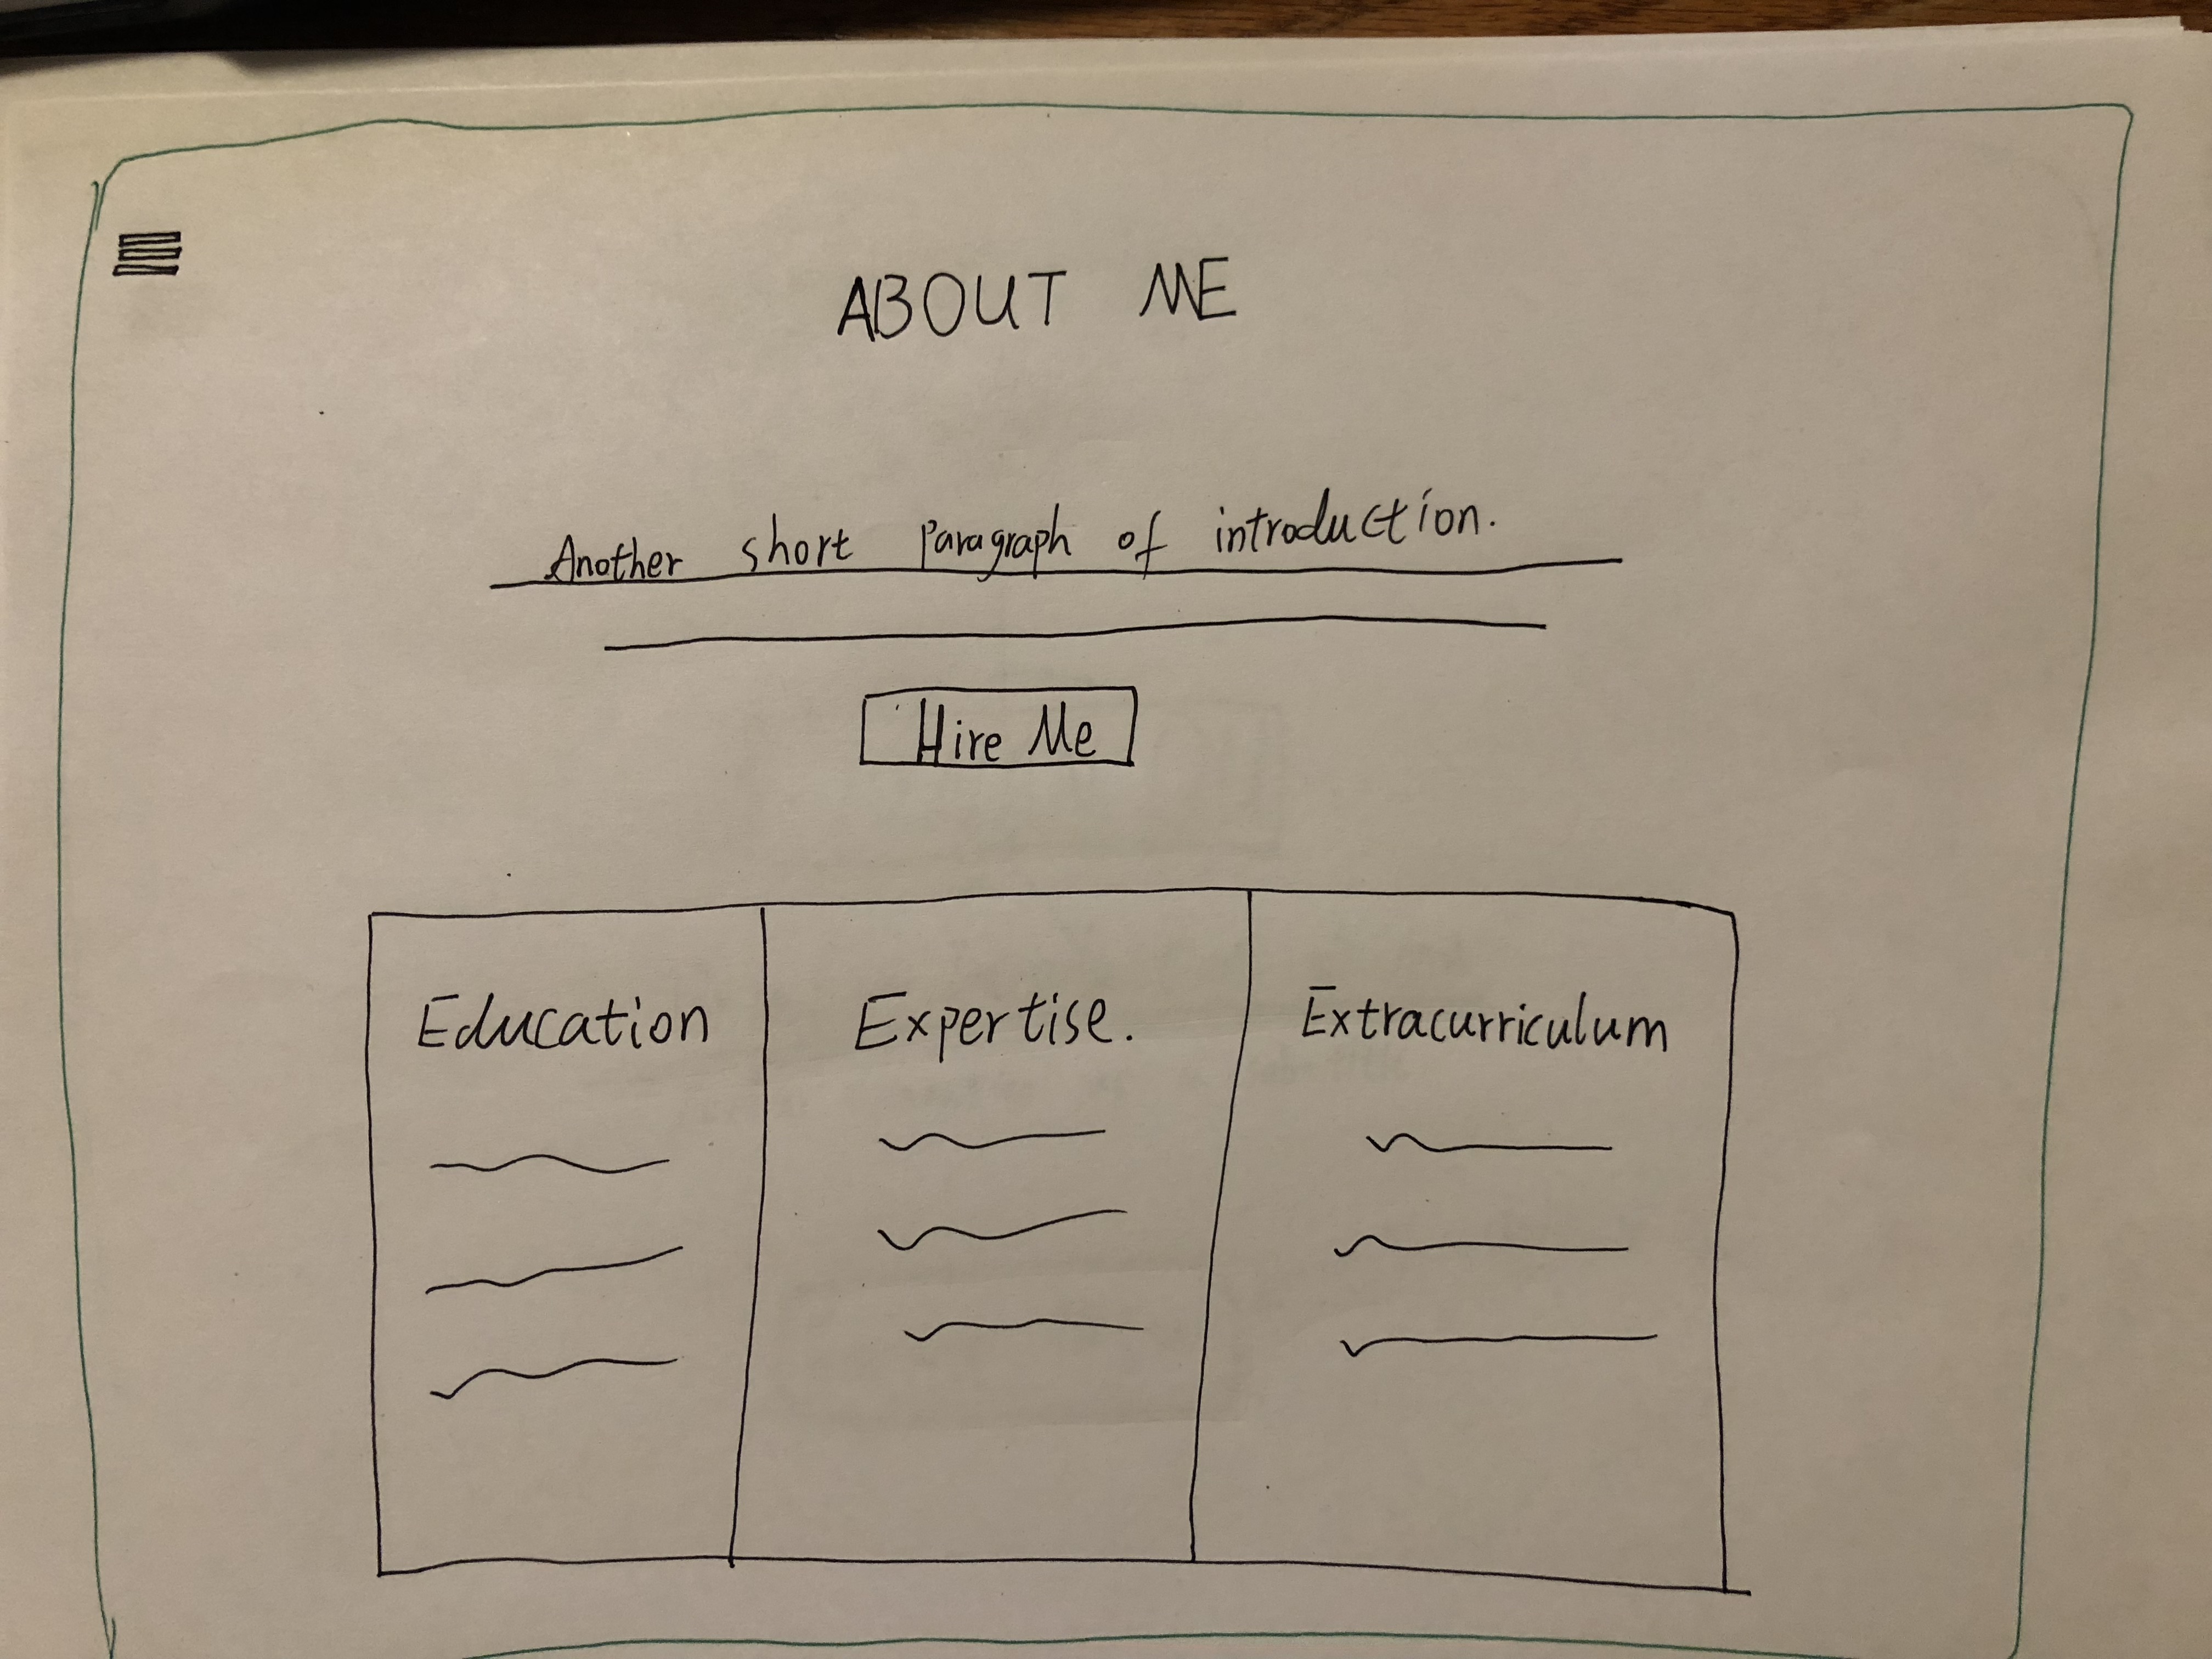 ABOUT ME
Another short paragraph of introduction.
Hire Me
Education
Expertise.
Extracurriculum